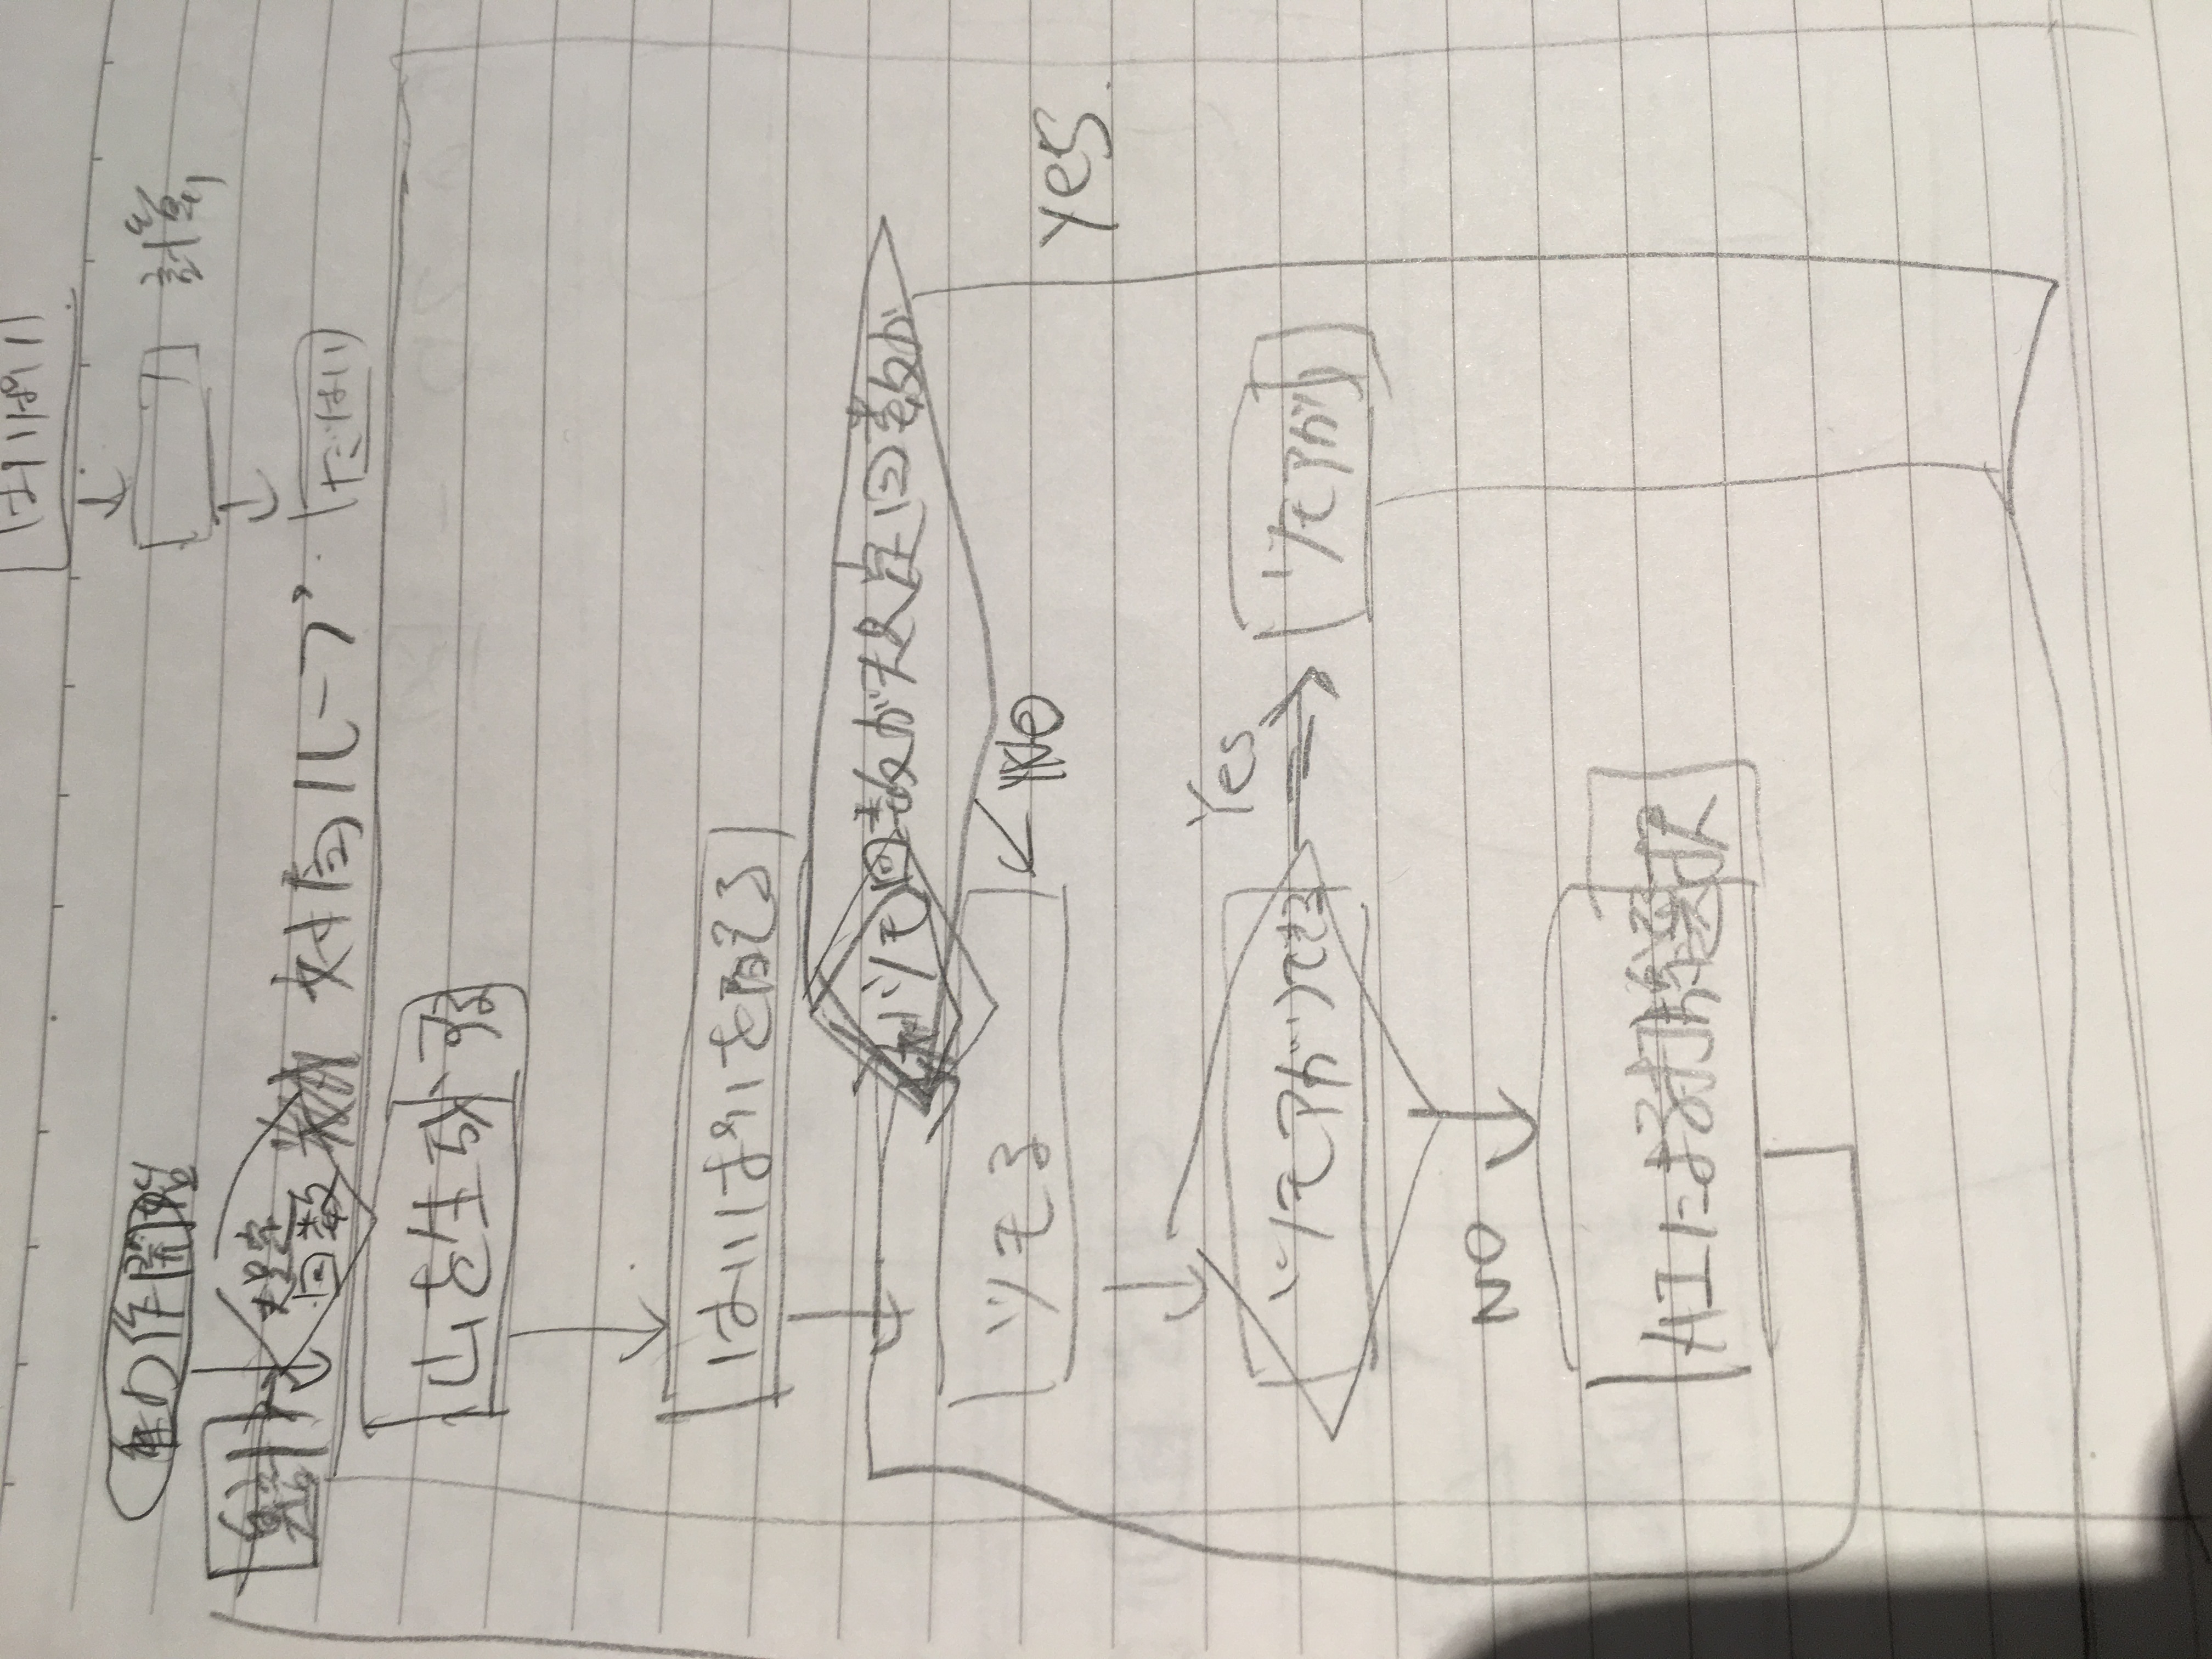 はいぱい
動作開始
計算
集計
規定
回数
対局ループ
だはい
山を生成する
はいぱいを配る
ツモ回数が規定回数か
ツモる
NO
yes
ツモアガリできる
Yes
ツモアガリ
NO
AIによる打牌選択